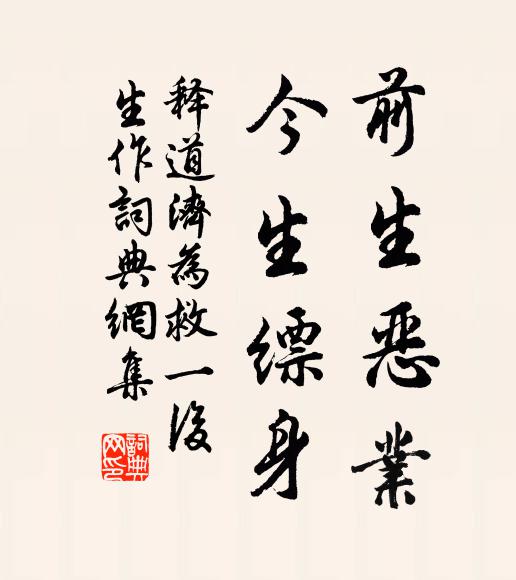 前生恶業
今生缥身
释道濟為救一後
生作詞典網集
詞典
网印